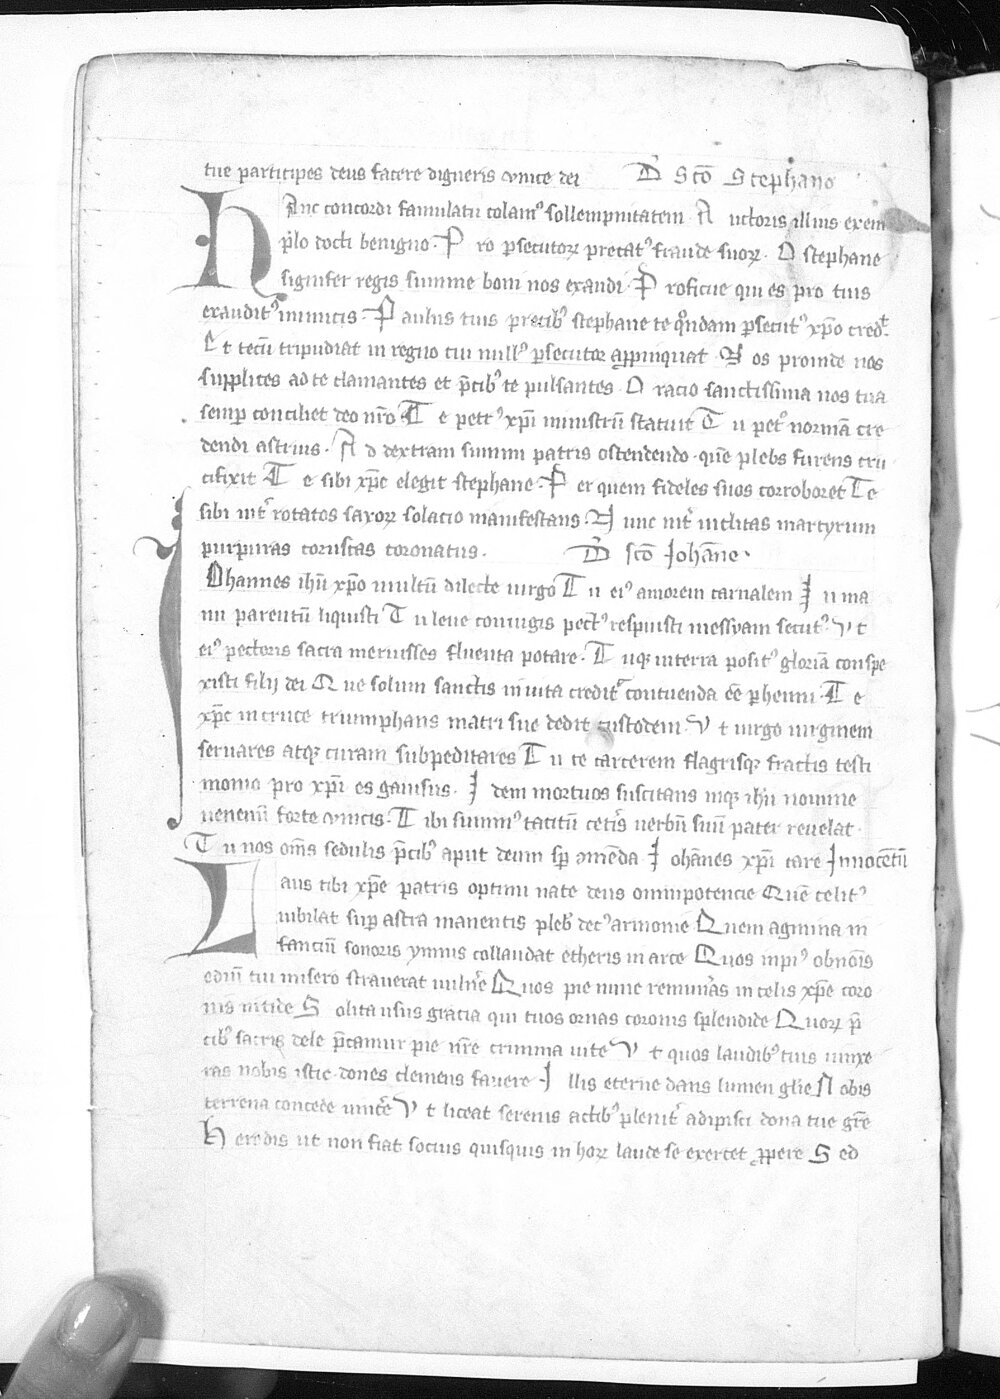 tue participes deus facere digneris vnice dei D̄ Scō Stephano
Hanc concordi famulatu colamꝰ sollempnitatem Auctoris illius exem
plo docti benigno. Pro ꝑsecutoꝝ precatꝰ fraude suoꝝ. O stephane
signifer regis summe boni nos exaudi. Proficue qui es pro tuis
exauditꝰ inimicis. Paulus tuis p̄cibꝰ stephane te qͦndam ꝑsecutꝰ xp̄o cred.ᵗ
Et tecū tripudiat in regno cui nullꝰ ꝑsecutor appinquat. Nos proinde nos
supplices ad te clamantes et p̄cibꝰ te pulsantes. Oracio sanctissima nos tua
semꝑ conciliet deo nr̄o Te petrꝰ xp̄i ministrū statuit Tu petͦ normā cre
dendi astruis. Ad dextram summi patris ostendendo. quē plebs furens cru
cifixit Te sibi xp̄e elegit stephane. Per quem fideles suos corroboret Te
sibi int̄ rotatos saxoꝝ solacio manifestans. Nunc int̄ inclitas martyrum
purpuras coruscas coronatus. D̄ scō Johān̄e.
Johannes ihū xp̄o multū dilecte uirgo Tu eiꝰ amorem carnalem In na
ui parentū liquisti Tu leue coniugis pectꝰ respuisti messyam secutꝰ. Vt
eiꝰ pectoris sacra meruisses fluenta potare. Tuqꝫ in terra positꝰ gloriā conspe
xisti filij dei Que solum sanctis in uita creditᷣ contuenda eē ꝑhenni. Te
xp̄c in cruce triumphans matri sue dedit custodem. Vt uirgo uirginem
seruares atqꝫ curam subpeditares Tu te carcerem flagrisqꝫ fractis testi
monio pro xp̄i es gauisus. Idem mortuos suscitans inqꝫ ihū nomine
uenenū forte vincis. Tibi summꝰ tacitū cet̄is uerbū suū pater reuelat.
Tu nos om̄s sedulis p̄cibꝰ aput deum sꝑ cōmēda Johānes xp̄i care Innocētū
Laus tibi xp̄e patris optimi nate deus omnipotencie Quē celitꝰ
iubilat suꝑ astra manentis plebꝭ decꝰ armonie Quem agmina in
fanciū sonoris ymnis collaudat etheris in arce Quos impiꝰ ob nōis
odiū tui misero strauerat uuln̄e Quos pie nunc remun̄as in celis xp̄e coro
nis nitide Solita usus gracia qui tuos ornas coronis splendide Quoꝝ p̄
cibꝰ sacris dele p̄camur pie nr̄e crimina uite Vt quos laudibꝰ tuis iunxe
ras nobis istic dones clemens fauere. Illis eterne dans lumen glīe Nobis
terrena concede uincēe Vt liceat serenis actibꝰ plenit̄ adipisci dona tue gr̄e
Herodis ut non fiat socius quisquis in hoꝝ laude se exercet ꝓpere Sed